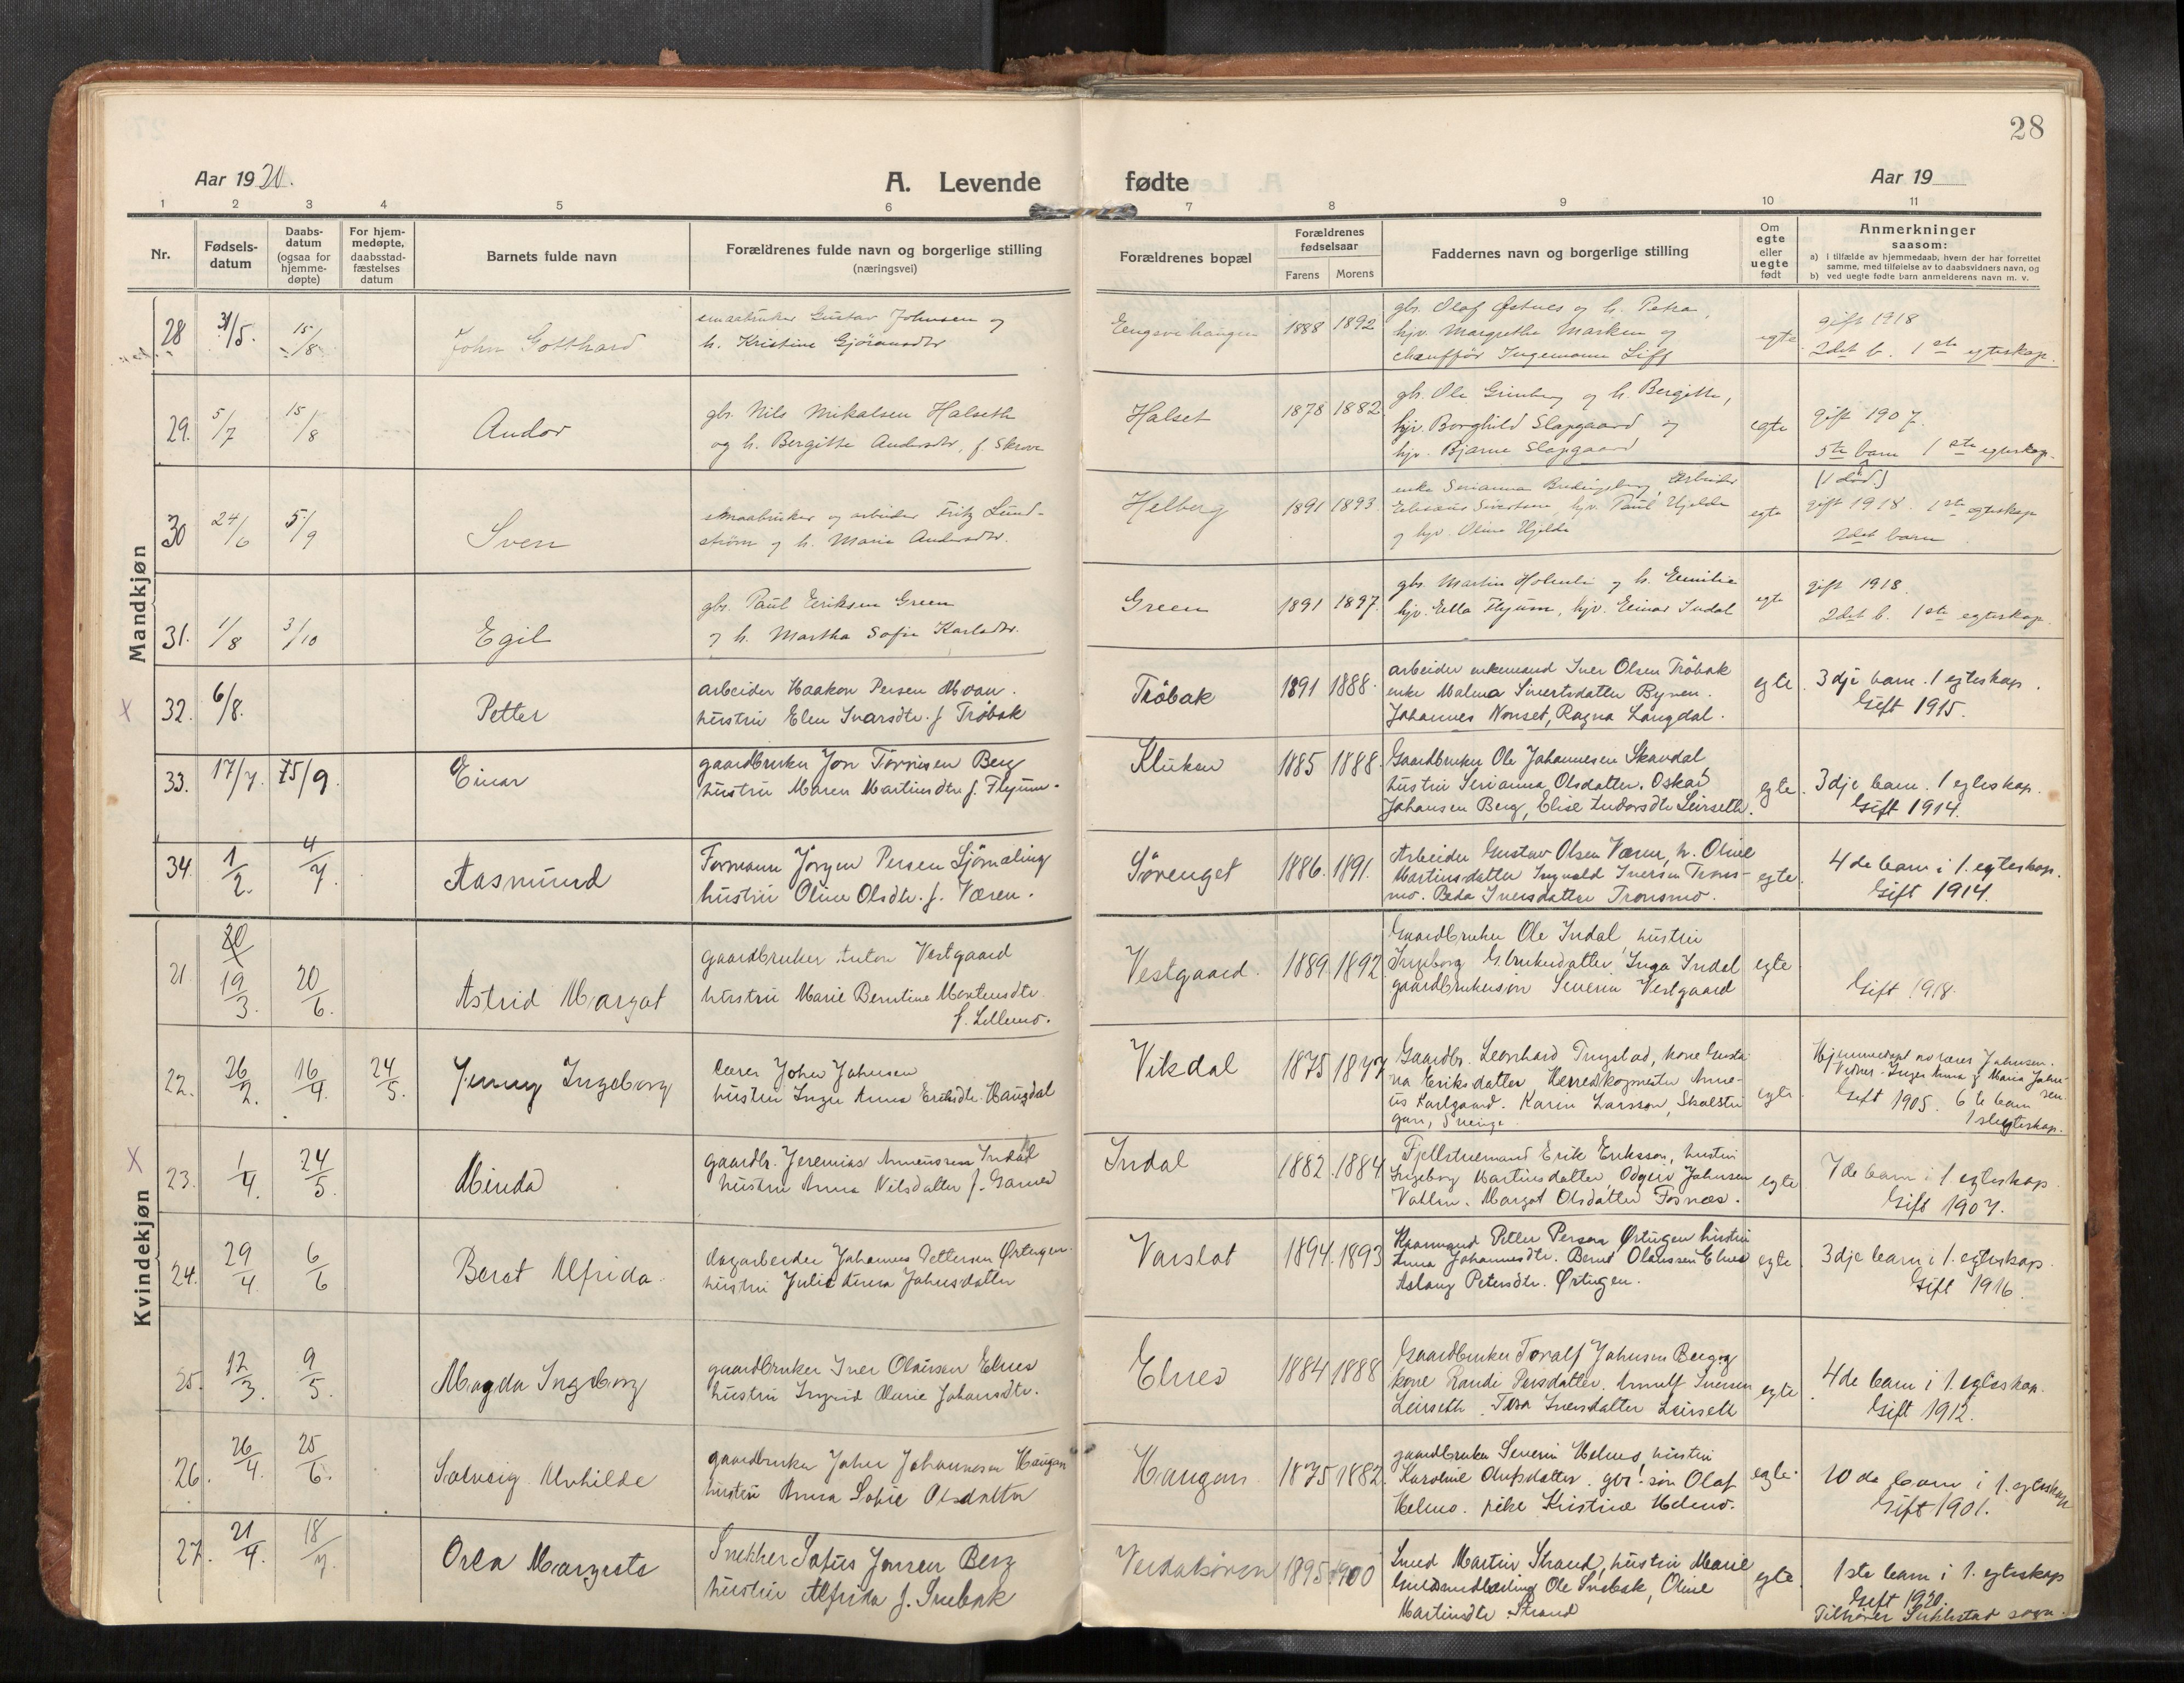 28
Aar 1920.
A. Levende
fødte
Aar 19
1 2 3 4 5 6 7 8 9 10 11
Nr.
Fødsels-
datum
Daabs-
datum
(ogsaa for
hjemme-
døpte)
For hjem-
medøpte,
daabsstad-
fæstelses
datum
Barnets fulde navn
Forældrenes fulde navn og borgerlige stilling
(næringsvei)
Forældrenes bopæl
Forældrenes
fødselsaar
Farens Morens
Faddernes navn og borgerlige stilling
Om
egte
eller
uegte
født
Anmerkninger
saasom:
a) i tilfælde av hjemmedaab, hvem der har forrettet
samme, med tilføielse av to daabsvidners navn, og
b) ved uegte fødte barn anmelderens navn m. v.
Mandkjøn
28 31/5. 15/8
John Gotthard
smaabruker Gustav Johnsen og
h. Kristine Gjöransdtr
1888 1892
gbr. Olaf Østnes og h. Petra,
hjv. Margrethe Marken og
chauffør Ingemann
egte
gift 1918
2det b. 1ste egteskap.
29. 5/7 15/8
Andor
gbr. Nils Mikalsen Halseth
og h. Bergitte Andersdtr, f. Skrove
Halset
1878 1882
gb. Ole Grinberg og h. Bergitte,
hjv. Borghild Slapgaard og
hjv. Bjarne Slapgaard
egte
gift 1907.
5te barn 1ste egteskap.
(1 død)
30 24/6 5/9
Sven
smaabruker og arbeider Fritz Lund-
ström og h. Marie Andersdtr.
Helberg
1891 1893.
enke Serianna arbeider
Sivertsen, hjv. Paul Hjelde
og hjv. Oline Hjelde
egte
gift 1918. 1ste egteskap
2det barn
31. 1/8 3/10
Egil
gbr. Paul Eriksen Green
og h. Martha Sofie Karlsdtr.
Green
1891 1897.
gbr. Martin Holmli og h. Emilie
hjv. Ella Flyum, hjv. Einar Indal
egte
gift 1918.
2det b. 1ste egteskap.
X 32. 6/8.
Petter
arbeider Haakon Persen Moan.
hustru Elen Ivarsdtr. f Trøbak
Trøbak
1891 1888.
arbeider enkemand Iver Olsen Trøbak
enke Malena Sivertsdatter Bynen.
Johannes Nonset, Ragna Langdal.
egte.
3dje barn. 1 egteskap.
Gift 1915.
33. 17/7. 15/9.
Einar
gaardbruker Jon Tørrisen Berg
hustru Maren Martinsdtr f. Flyum.
Kluken
1885 1888.
Gaardbruker Ole Johannesen Skavdal,
hustru Serianna Olsdatter. Oskar
Johansen Berg, Elise Andorsdtr Leirseth.
egte.
3dje barn. 1 egteskap.
Gift 1914.
34. 1/2. 4/7.
Aasmund
Formann Jörgen Persen Sjömæling
hustru Oline Olsdtr. f. Væren.
Sörenget
1886. 1891.
Arbeider Gustav Olsen Væren, h. Oline
Martinsdatter Ingvald Iversen Trons-
mo. Beda Iversdatter Tronsmo.
egte.
4de barn i 1. egteskap.
Gift 1914.
Kvindekjøn
21. 19/3. 20/6.
Astrid Margot
gaardbruker Anton Vestgaard
hustru Marie Berntine Mortensdtr.
f. Lillemo.
Vestgaard.
1889 1892
Gaardbruker Ole Indal hustru
Ingeborg G.brukerdatter Inga Indal
gaardbrukersön Severin Vestgaard
egte
Gift 1918.
22. 26/2. 16/4. 24/5.
Jenny Ingeborg
Lærer Johan Johnsen
hustru Inger Anna Eriksdtr. Haugdal
Vikdal
1875
Gaardbr. Leonhard Tingstad, kone Gusta-
va Eriksdatter Karin Larsson,
egte.
Hjemmedøpt av lærer Johnsen.
Vidner: Inger Anna og Maria John-
sen.
Gift 1905. 6te barn
1ste egteskap.
X 23. 1/4. 24/5.
Minda
gaardbr. Jeremias Indal
hustru Anna Nilsdatter f. Garnes
Indal
1882. 1884
Fjellstuemand Erik Eriksson, hustru
Ingeborg Martinsdatter, Oddgeir Johnsen
Vohlen. Margot Olsdatter Fosnæs.
egte
7de barn i 1 egteskap.
Gift 1907.
24. 29/4. 6/6
Beret Alfrida.
dagarbeider Johannes Pettersen Ørtugen.
hustru Julie Anna Johnsdatter
Varslot
1894. 1893
Kaarmand Petter Persen Ørtugen hustru
Anna Johannesdtr. Bernt Olaussen Elnes
Aslaug Petersdtr. Ørtugen.
egte
3dje barn i 1. egteskap.
Gift 1916.
25. 12/3. 9/5.
Magda Ingeborg
gaardbruker Iver Olaussen Elnes
hustru Ingrid Marie Johansdtr.
Elnes
1884 1888
Gaardbruker Toralf Johnsen Berg og
kone Randi Persdatter. Arnulf Iversen
Leirseth. Tora Iversdatter Leirseth
egte
4de barn i 1. egteskap.
Gift 1912.
26. 26/4. 25/6.
Solveig Alvhilde
gaardbruker John Johannesen Haugan
hustru Anna Sofie Olsdatter
Haugan
1875 1882.
gaardbruker Severin Helmo, hustru
Karoline Olufsdatter. gbr. søn Olaf
Helmo. pike Kristine Helmo.
egte.
10de barn i 1. egteskap
Gift 1901.
27. 21/4. 18/7.
Orla Margrete
Snekker Sofus Jonsen Berg
hustru Alfrida f. Snebak
Verdalsören
1895 1900
Smed Martin Strand, hustru Marie
Ole Snebak, Oline
Martinsdtr. Strand
egte.
1ste barn i 1. egteskap
Gift 1920.
Tilhører Stiklestad sogn.